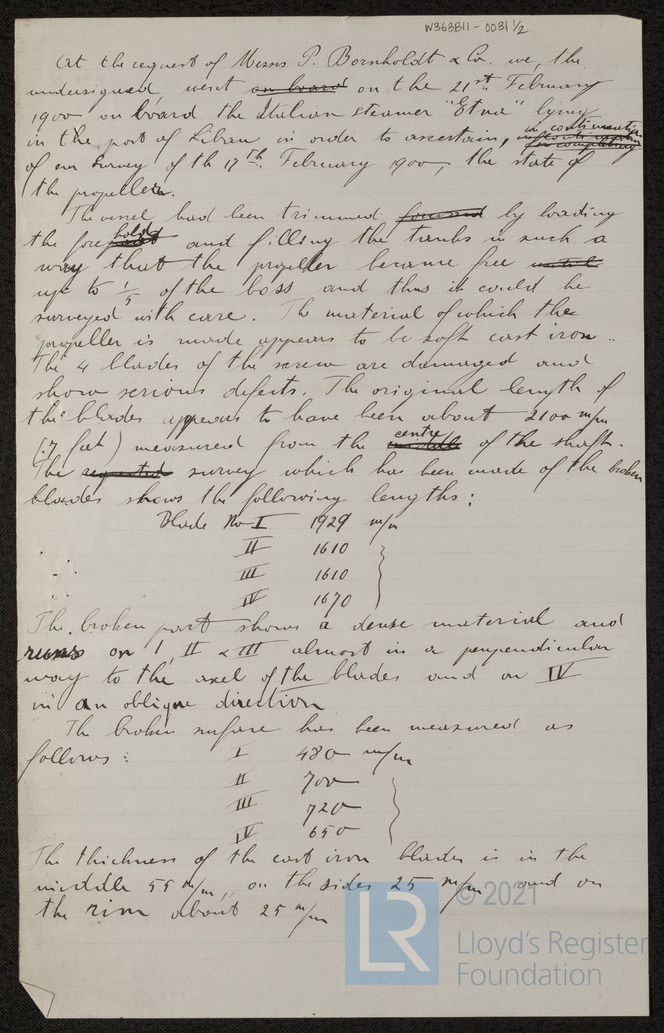 W363811-0031 1/2
At the request of Messrs P. Bornholdt & Co. we, the
undersigned, went on board on the 21st February
1900 on board the Italian steamer "Etna" lying
in the port of Libau in order to ascertain, in continuation
of our survey of th 17th February 1900, the state of
the propeller.
The vessel had been trimmed by loading
the forehold and filling the tanks in such a
way that the propeller became free until
up to 1/5 of the boss and thus it could be
surveyed with care. The material of which the
propeller is made appears to be soft cast iron.
The 4 blades of the screw are damaged and
show serious defects. The original length of
the blades appears to have been about 2100 m/m
(7 feet) measured from the middle centre of the shaft.
The requested survey which has been made of the broken
blades shows the following lengths:
Blade No I 1929 m/m
" II 1610
" III 1610
" IV 1670
The broken part shows a dense material and
runs on I, II & III almost in a perpendicular
way to the axel of the blades and on IV
in an oblique direction
The broken surface has been measured as
follows: I 480 m/m
II 700
III 720
IV 650
The thickness of the cast iron blades is in the
middle 55 m/m, on the sides 25 m/m and on
the rim about 25 m/m
© 2021
LR
Lloyd's Register
Foundation